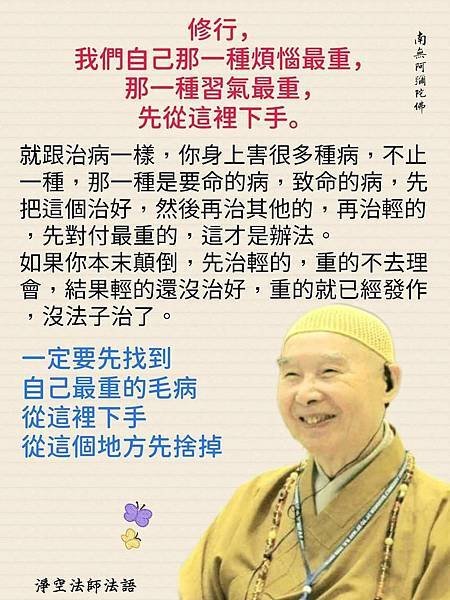 修行，
我們自己那一種煩惱最重，
那一種習氣最重，
先從這裡下手。
南無阿彌陀佛
就跟治病一樣，你身上害很多種病，不止
一種，那一種是要命的病，致命的病，先
把這個治好，然後再治其他的，再治輕的
，先對付最重的，這才是辦法。
如果你本末顛倒，先治輕的，重的不去理
會，結果輕的還沒治好，重的就已經發作
，沒法子治了。
一定要先找到
自己最重的毛病
從這裡下手
從這個地方先捨掉
淨空法師法語